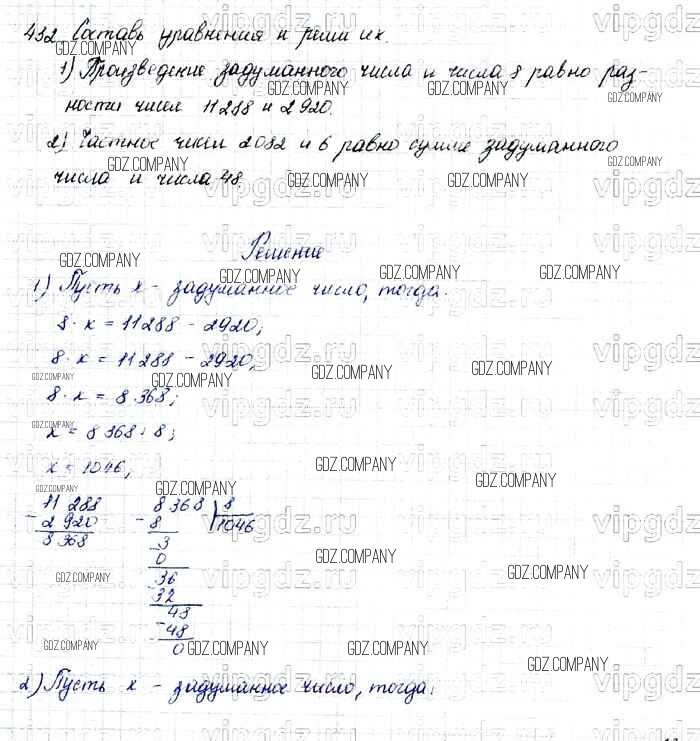 432 Составь уравнения и реши их.
1) Произведение задуманного числа и числа 8 равно раз-
ности чисел 11288 и 2920.
2) Частное чисел 2082 и 6 равно сумме задуманного
числа и числа 48.
Решение
1) Пусть x - задуманное число, тогда:
8 · x = 11288 - 2920;
8 · x = 11288 - 2920;
8 · x = 8368;
x = 8368 : 8;
x = 1046;
11 288
- 2 920
8 368
8368 | 8
- 8 1046
3
0
36
32
48
- 48
0
2) Пусть x - задуманное число, тогда:
GDZ.COMPANY
vipgdz.ru